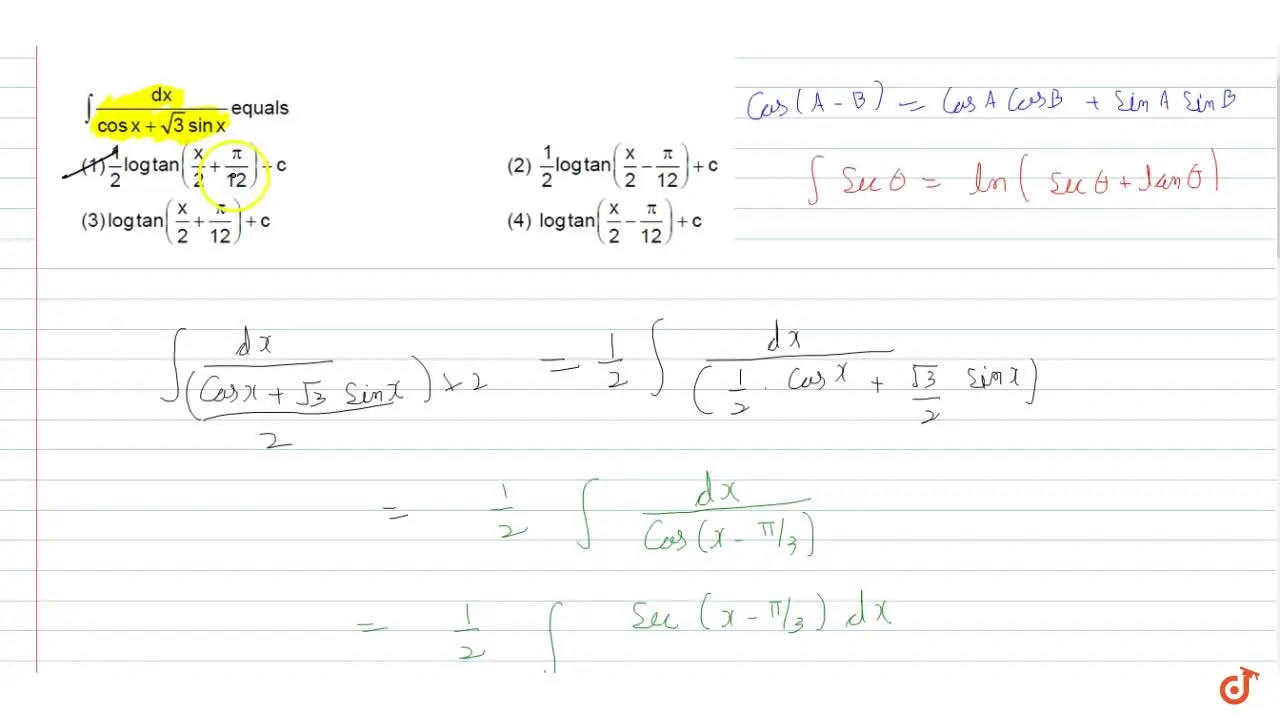 ∫ dx / (cos x + √3 sin x) equals
(1) 1/2 log tan(x/2 + π/12) + c
(2) 1/2 log tan(x/2 − π/12) + c
(3) log tan(x/2 + π/12) + c
(4) log tan(x/2 − π/12) + c
Cos(A - B) = CosA CosB + SinA SinB
∫ Secθ = ln(Secθ + tanθ)
∫ dx / ((Cosx + √3 Sinx)/2) × 2 = 1/2 ∫ dx / (1/2 · Cosx + √3/2 Sinx)
= 1/2 ∫ dx / Cos(x - π/3)
= 1/2 ∫ Sec(x - π/3) dx